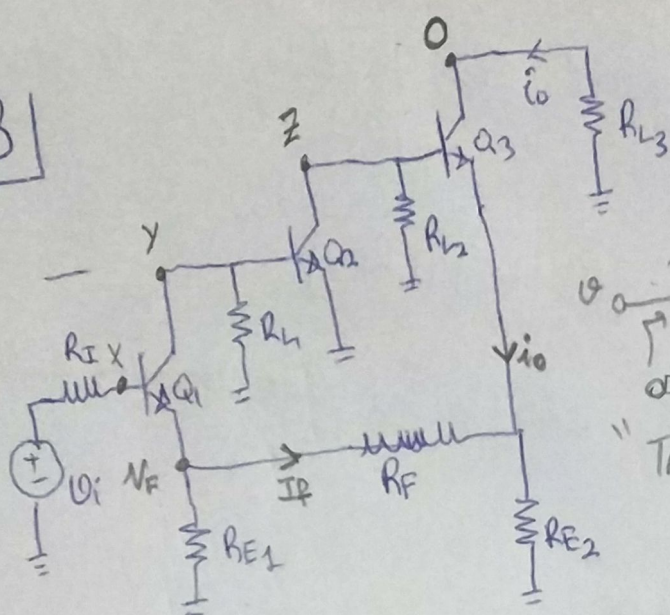 O
io
RL3
Z
Q3
RL2
Y
Q2
RL1
RI X
Q1
+
-
υi
NF
If
RF
io
RE1
RE2
υ
"